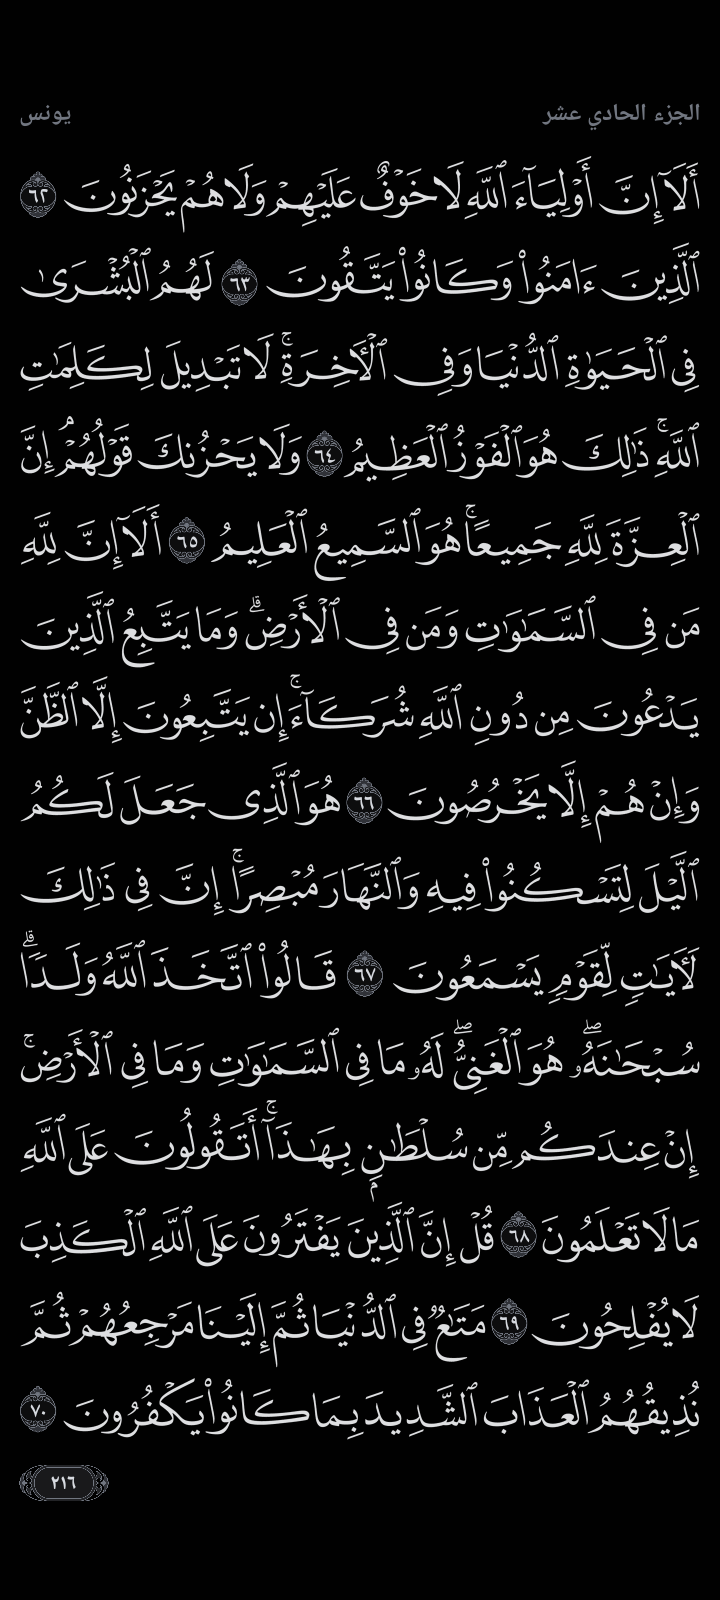 الجزء الحادي عشر
يونس
أَلَآ إِنَّ أَوْلِيَآءَ ٱللَّهِ لَا خَوْفٌ عَلَيْهِمْ وَلَا هُمْ يَحْزَنُونَ ٦٢
ٱلَّذِينَ ءَامَنُوا۟ وَكَانُوا۟ يَتَّقُونَ ٦٣ لَهُمُ ٱلْبُشْرَىٰ
فِى ٱلْحَيَوٰةِ ٱلدُّنْيَا وَفِى ٱلْـَٔاخِرَةِ ۚ لَا تَبْدِيلَ لِكَلِمَـٰتِ
ٱللَّهِ ۚ ذَٰلِكَ هُوَ ٱلْفَوْزُ ٱلْعَظِيمُ ٦٤ وَلَا يَحْزُنكَ قَوْلُهُمْ ۘ إِنَّ
ٱلْعِزَّةَ لِلَّهِ جَمِيعًا ۚ هُوَ ٱلسَّمِيعُ ٱلْعَلِيمُ ٦٥ أَلَآ إِنَّ لِلَّهِ
مَن فِى ٱلسَّمَـٰوَٰتِ وَمَن فِى ٱلْأَرْضِ ۗ وَمَا يَتَّبِعُ ٱلَّذِينَ
يَدْعُونَ مِن دُونِ ٱللَّهِ شُرَكَآءَ ۚ إِن يَتَّبِعُونَ إِلَّا ٱلظَّنَّ
وَإِنْ هُمْ إِلَّا يَخْرُصُونَ ٦٦ هُوَ ٱلَّذِى جَعَلَ لَكُمُ
ٱلَّيْلَ لِتَسْكُنُوا۟ فِيهِ وَٱلنَّهَارَ مُبْصِرًا ۚ إِنَّ فِى ذَٰلِكَ
لَـَٔايَـٰتٍ لِّقَوْمٍ يَسْمَعُونَ ٦٧ قَالُوا۟ ٱتَّخَذَ ٱللَّهُ وَلَدًا ۗ
سُبْحَـٰنَهُۥ ۖ هُوَ ٱلْغَنِىُّ ۖ لَهُۥ مَا فِى ٱلسَّمَـٰوَٰتِ وَمَا فِى ٱلْأَرْضِ ۚ
إِنْ عِندَكُم مِّن سُلْطَـٰنٍۭ بِهَـٰذَآ ۚ أَتَقُولُونَ عَلَى ٱللَّهِ
مَا لَا تَعْلَمُونَ ٦٨ قُلْ إِنَّ ٱلَّذِينَ يَفْتَرُونَ عَلَى ٱللَّهِ ٱلْكَذِبَ
لَا يُفْلِحُونَ ٦٩ مَتَـٰعٌ فِى ٱلدُّنْيَا ثُمَّ إِلَيْنَا مَرْجِعُهُمْ ثُمَّ
نُذِيقُهُمُ ٱلْعَذَابَ ٱلشَّدِيدَ بِمَا كَانُوا۟ يَكْفُرُونَ ٧٠
٢١٦